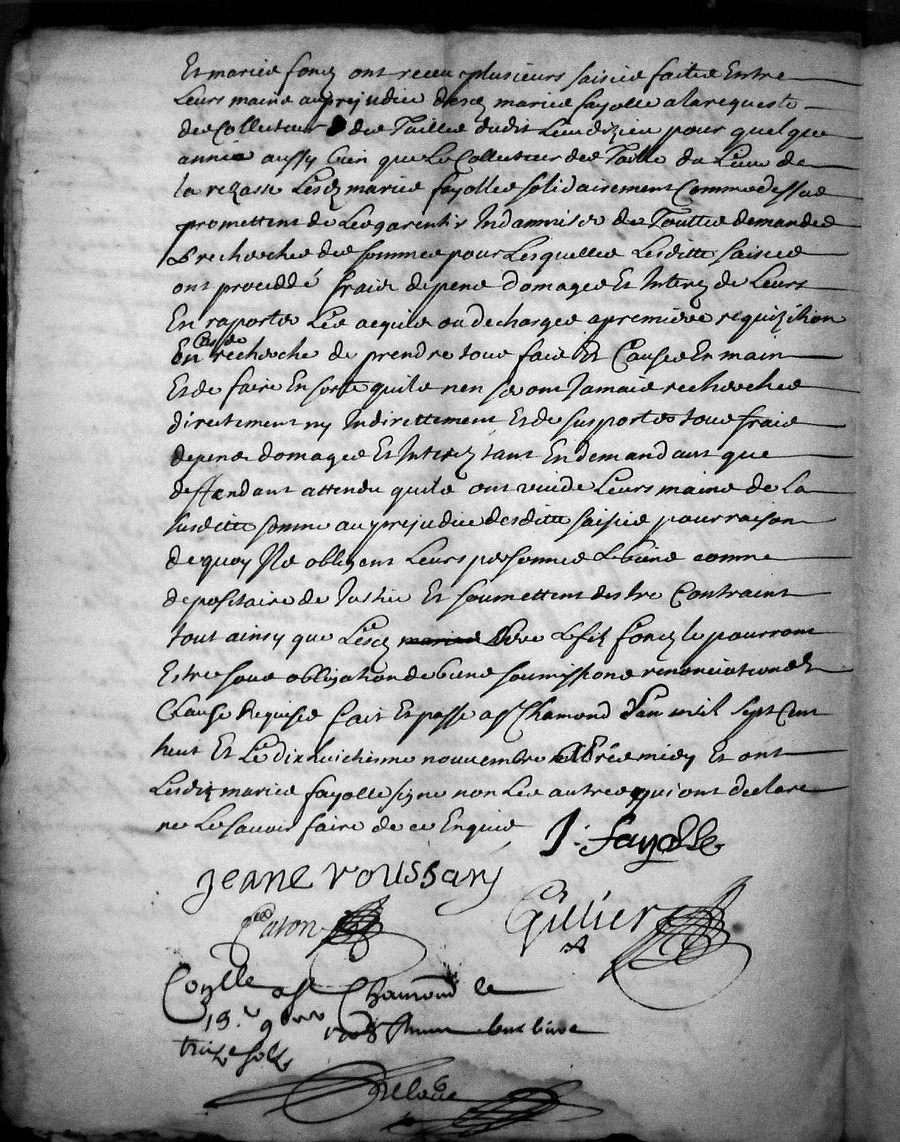 Et mariés fond ont receu plusieurs saisies faites Entre
Leurs mains au prejudice desd mariés fayolle a la requeste
des Collecteurs des Tailles dudit Lieu pour quelque
année aussy bien que Le Collecteur des Taille du Lieu de
la Lesd mariés fayolles solidairement Comme dessus
promettent de Les garentir Indamniser de Touttes demandes
& recherches des sommes pour Lesquelles Lesditte saisies
ont proceddé fraix depens domages Et Interez de Leurs
En raporter Les acquits ou decharges a premiere requizition
En Cas de recherche de prendre tous fait Et Cause En main
Et de faire En sorte quils nen seront Jamais recherches
directement ny Indirettement Et de supporter tous frais
depens domages Et Interez tant En demandant que
deffandant attendu quils ont vuidé Leurs mains de La
susditte somme au prejudice desditte saisies pour raison
de quoy Ils obligent Leurs personnes & biens comme
depositaire de Justice Et soumettent destre Contraint
tout ainsy que Lesd mariés Pere & fils le pourront
Estre sous obligation de biens soumissions renonciations &
Clause Requise fait Et passé a St Chamond Lan mil sept Cent
huit Et Le dix huictiesme nouvembre apres midy Et ont
Lesdits mariés fayolle signé non Les autres qui ont declaré
ne Le savoir faire de ce Enquis
J. fayolle
Jeane voussary
Gillier
Conlle a St Chamond le
19.e 9bre 1708
treize sols